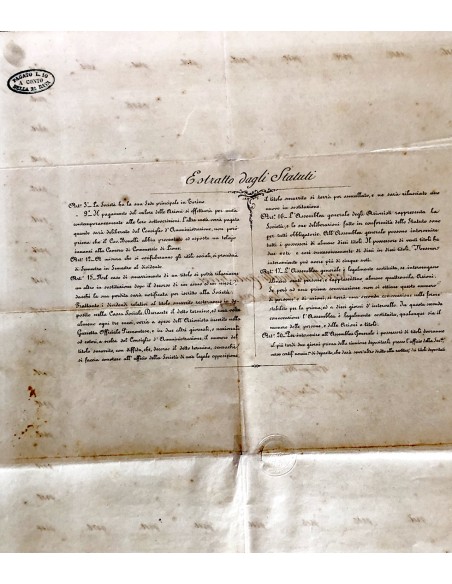 PAGATO L. 10
A CONTO
DELLA 1a RATA
Estratto dagli Statuti
Art. 3º La Società ha la sua Sede principale in Torino
" 9º Il pagamento del valore delle Azioni si effettuerà per
contemporaneamente alla loro sottoscrizione. L'altra metà verrà pagata
mediante deliberazione del Consiglio d'Amministrazione, non però
prima che il Cav. Bonelli abbia presentato ed esposto un telajo
innanzi alla Camera di Commercio di Torino.
Art. 12º A misura che si
di Segnatura in Semestre al Sindato
Art. 13º Nel caso di smarrimento di un titolo si potrà rilasciarne
un altro in sostituzione dopo il decorso di un anno
dacchè la sua perdita verrà notificata per iscritto alla Società.
Frattanto i dividendi relativi al titolo smarrito resteranno in de
posito nella Cassa Sociale. Durante il detto termine, ed una volta
almeno ogni tre mesi, verrà a spese dell'Azionista inserito nella
Gazzetta Ufficiale Piemontese, e in due altri giornali, nazionali
ed esteri, a scelta del Consiglio d'Amministrazione, il numero del
titolo smarrito, con diffida, che, decorso il detto termine, senza che
si faccia constare all'uffizio della Società di una legale opposizione
il titolo smarrito si terrà per annullato, e ne sarà rilasciato altro
nuovo in sostituzione
Art. 16º L'Assemblea generale degli Azionisti rappresenta la
Società, e le sue deliberazioni fatte in conformità dello Statuto sono
per tutti obbligatorie. All'Assemblea generale possono intervenire
tutti i possessori di almeno dieci titoli. Il possessore di venti titoli ha
due voti, e così successivamente di dieci in dieci titoli. Nessun
intervenuto può avere più di cinque voti.
Art. 17. L'Assemblea generale è legalmente costituita, se intervengono
almeno venti persone, e rappresentino almeno quattrocento Azioni.
Se però ad una prima convocazione non si ottiene questo numero
di persone e di azioni, si terrà una seconda convocazione nelle forme
stabilite per la prima, ed a dieci giorni d'intervallo. In questa seconda
convocazione l'Assemblea è legalmente costituita, qualunque sia il
numero delle persone, e delle Azioni o titoli.
Art. 20. Per intervenire all'Assemblea Generale i possessori di titoli dovranno
al più tardi due giorni prima della riunione depositarli presso l'uffizio della Soc.tà
contro certif.